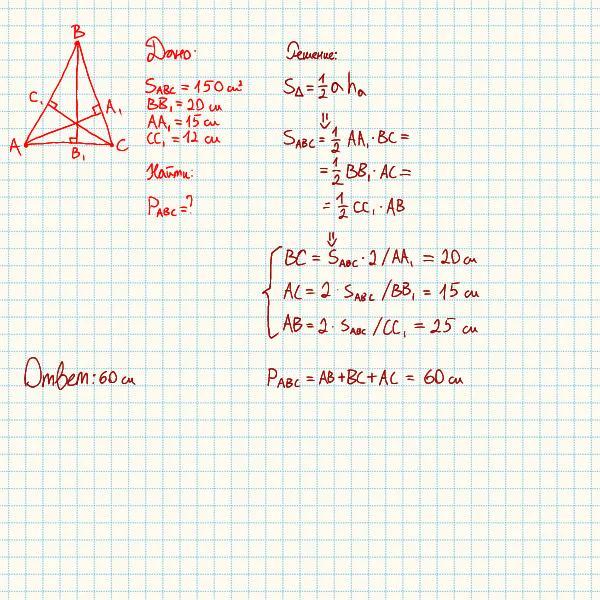 B
C₁
A₁
A
B₁
C
Дано:
S_ABC = 150 см²
BB₁ = 20 см
AA₁ = 15 см
CC₁ = 12 см
Найти:
P_ABC = ?
Решение:
S_Δ = 1/2 a hₐ
⇓
S_ABC = 1/2 AA₁ · BC =
= 1/2 BB₁ · AC =
= 1/2 CC₁ · AB
⇓
BC = S_ABC · 2 / AA₁ = 20 см
AC = 2 · S_ABC / BB₁ = 15 см
AB = 2 · S_ABC / CC₁ = 25 см
P_ABC = AB + BC + AC = 60 см
Ответ: 60 см